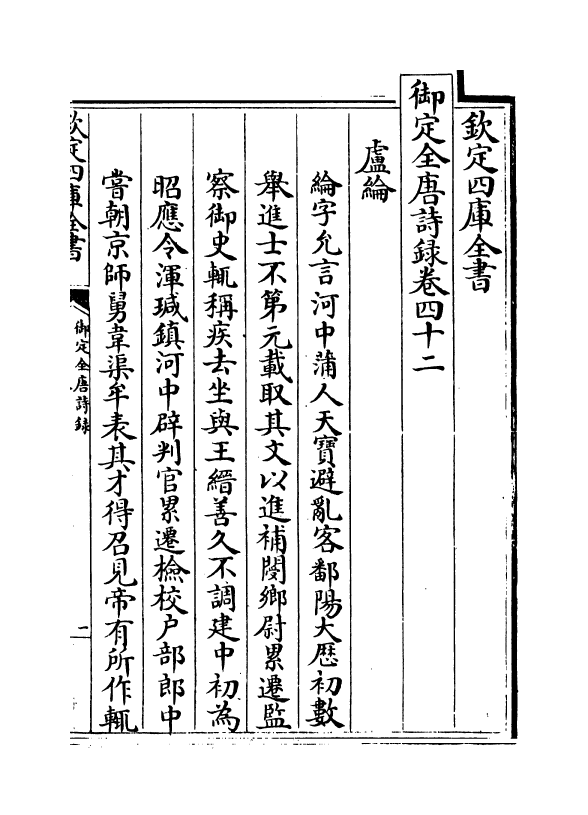 欽定四庫全書
御定全唐詩録卷四十二
盧綸
綸字允言河中蒲人天寶避亂客鄱陽大厯初數
舉進士不第元載取其文以進補閿鄉尉累遷監
察御史輒稱疾去坐與王縉善久不調建中初為
昭應令渾瑊鎮河中辟判官累遷檢校户部郎中
嘗朝京師舅韋渠牟表其才得召見帝有所作輒
欽定四庫全書
御定全唐詩録
一